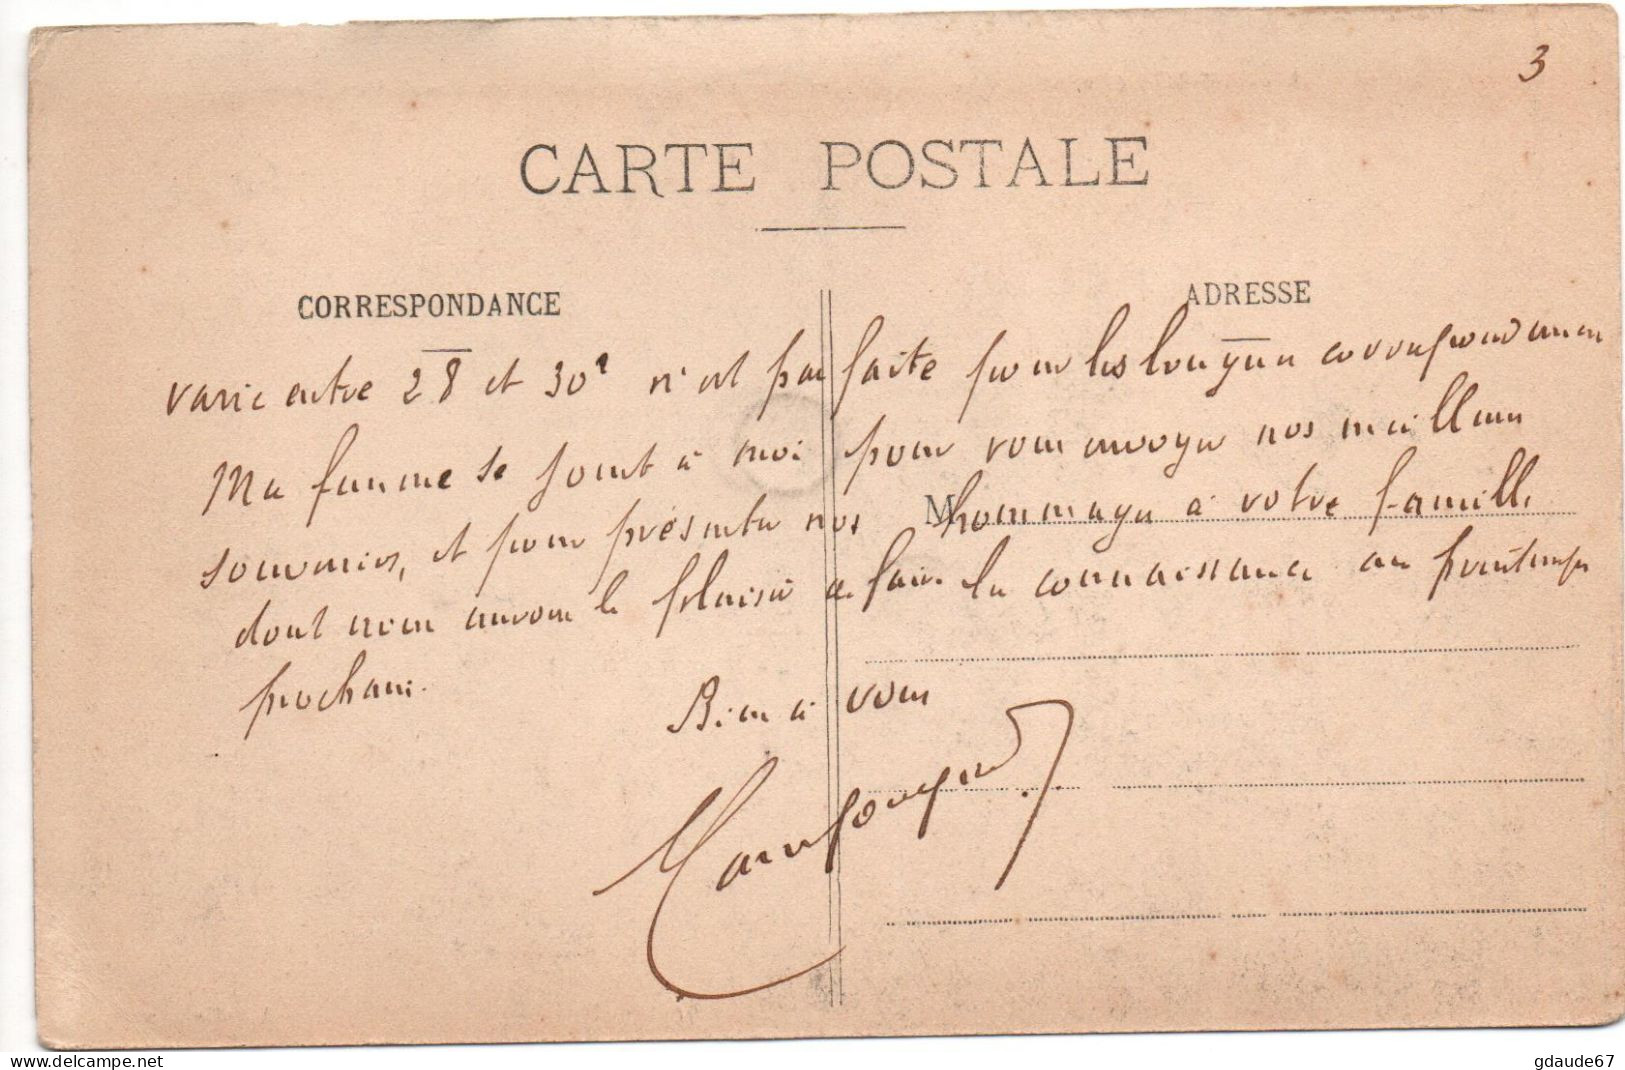 3
CARTE POSTALE
CORRESPONDANCE
ADRESSE
varie entre 28 et 30° n'est pas faite pour les longues correspondances
Ma femme se joint à moi pour vous envoyer nos meilleurs
souvenirs, et pour présenter nos hommages à votre famille
M
dont nous aurons le plaisir de faire la connaissance au printemps
prochain.
Bien à vous
www.delcampe.net
gdaude67